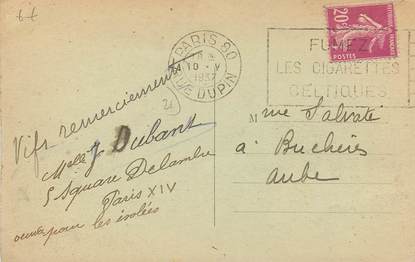 PARIS 90
10 - V
1937
RUE DUPIN
20c
POSTES
FUMEZ
LES CIGARETTES
CELTIQUES
Vifs remerciements
Melle J. Dubant
5 Square Delambre
Paris XIV
pour les isolées
Mme Salvati
à Buchères
Aube